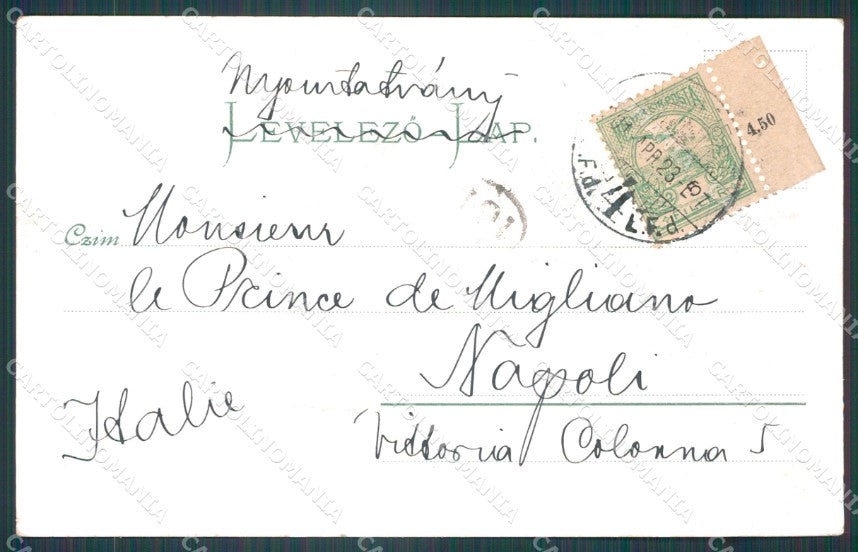 Nyomtatvány
LEVELEZŐ-LAP.
4.50
Czim Monsieur
le Prince de Migliano
Napoli
Italie
Vittoria Colonna 5
CARTOLINOMANIA